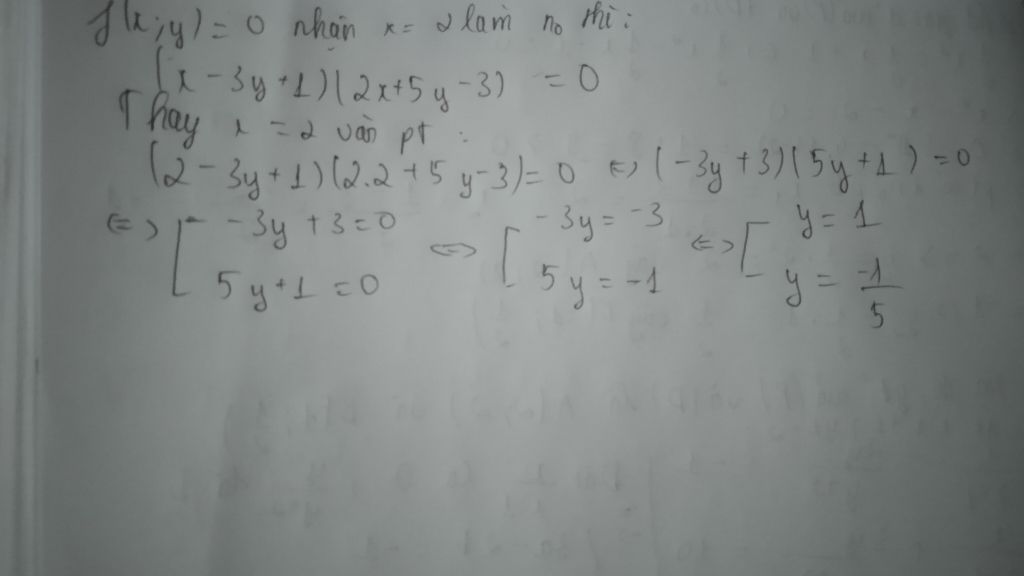 f(x;y) = 0 nhận x = 2 làm no thì:
(x - 3y + 1)(2x + 5y - 3) = 0
Thay x = 2 vào pt:
(2 - 3y + 1)(2.2 + 5y - 3) = 0 <=> (-3y + 3)(5y + 1) = 0
<=> [ -3y + 3 = 0 <=> [ -3y = -3 <=> [ y = 1
5y + 1 = 0 5y = -1 y = -1/5